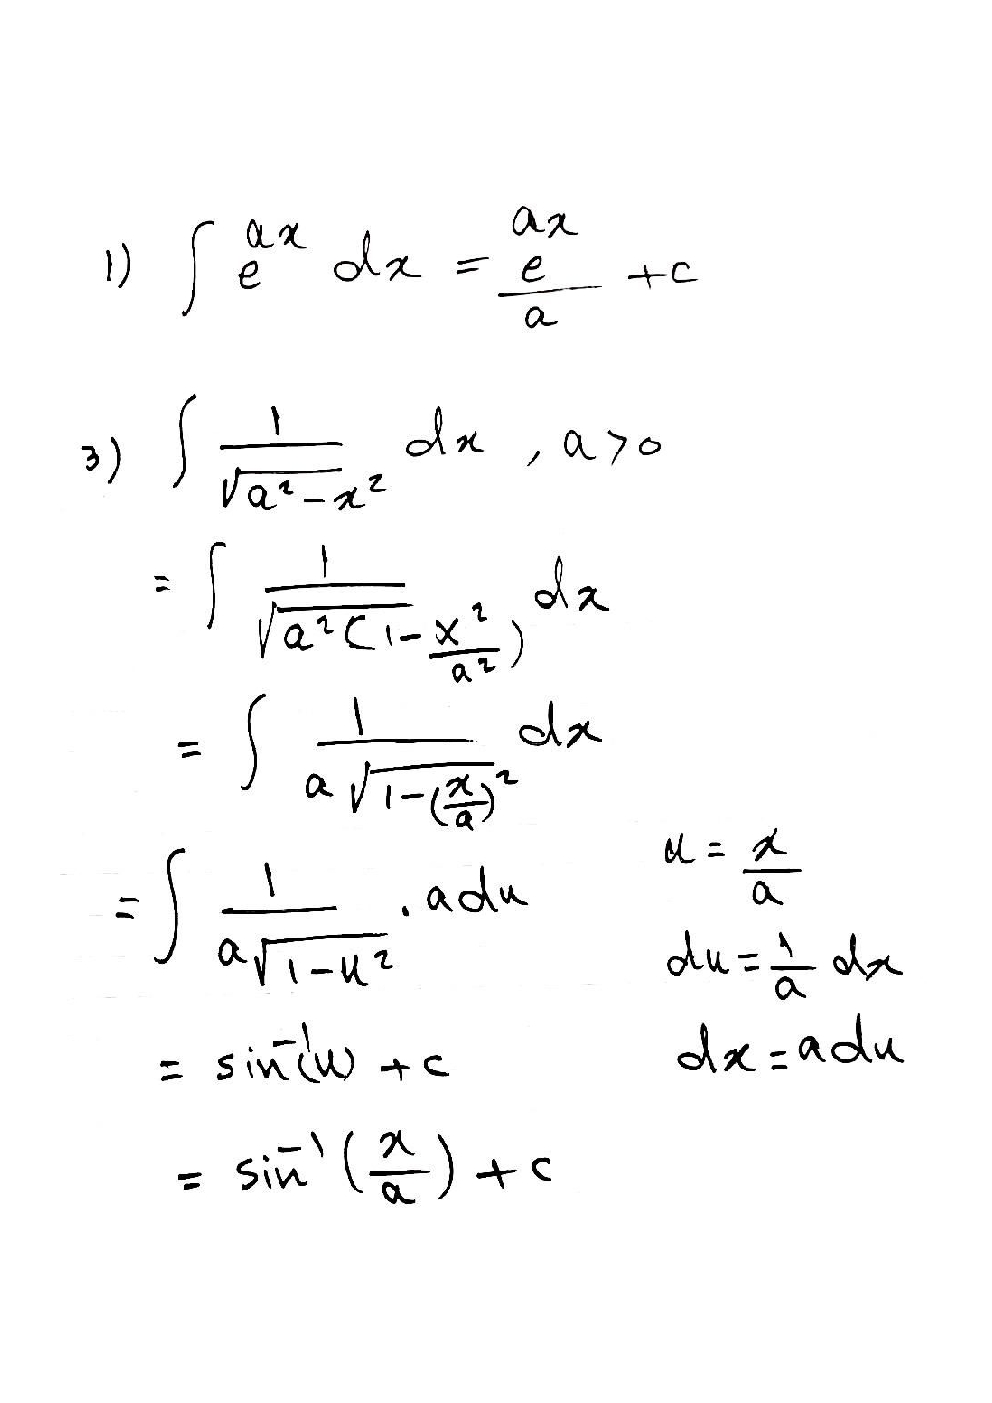 1) ∫ e^{ax} dx = e^{ax}/a + c
3) ∫ 1/√(a² - x²) dx , a > 0
= ∫ 1/√(a²(1 - x²/a²)) dx
= ∫ 1/(a√(1 - (x/a)²)) dx
= ∫ 1/(a√(1 - u²)) . a du
u = x/a
du = 1/a dx
dx = a du
= sin⁻¹(u) + c
= sin⁻¹(x/a) + c